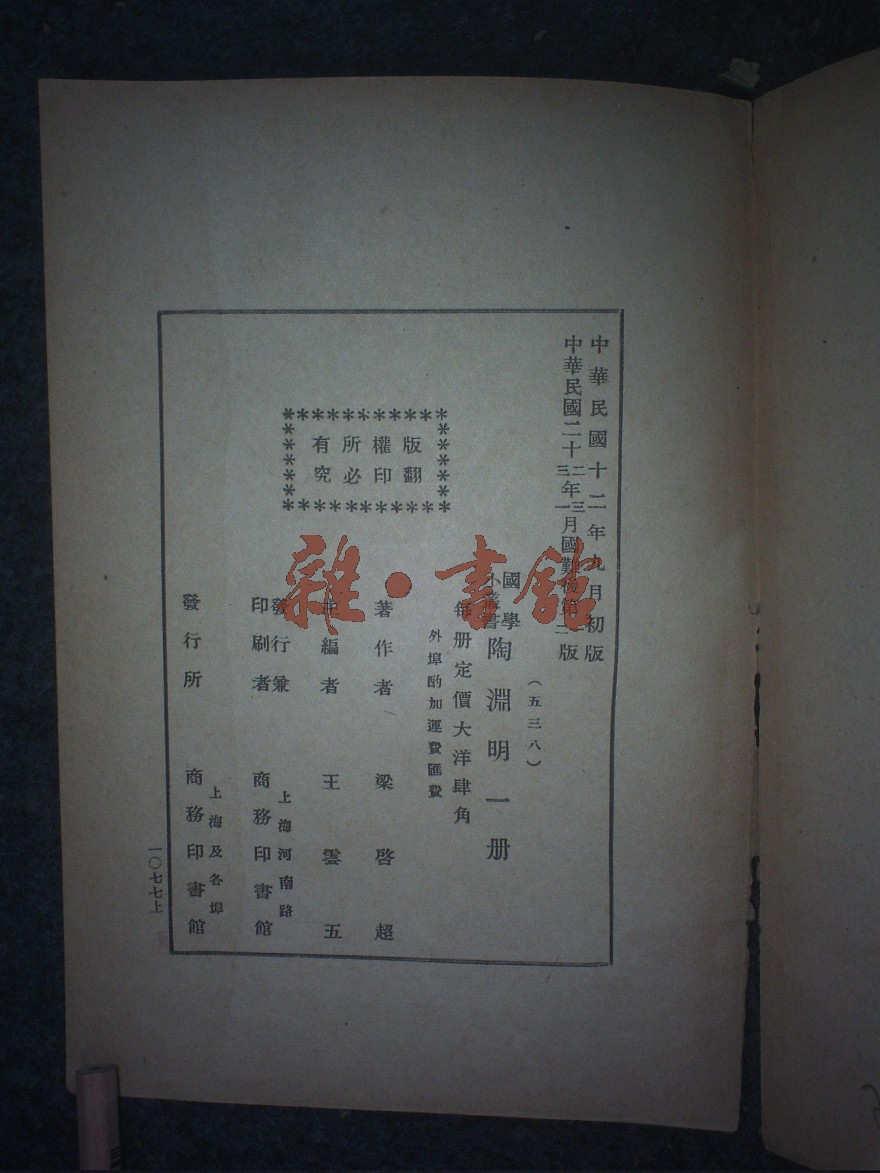 中華民國十二年九月初版
中華民國二十二三年三一月國難後第二版
(五三八)
國學小叢書
陶淵明一册
每册定價大洋肆角
外埠酌加運費匯費
版權所有
翻印必究
著作者 梁啓超
主編者 王雲五
發行兼印刷者
上海河南路
商務印書館
發行所
上海及各埠
商務印書館
一〇七七上
雜·書館